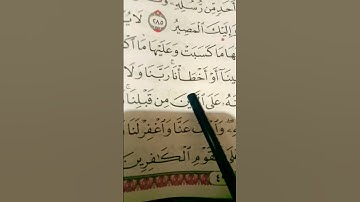 أَحَدٍ مِّن رُّسُلِهِ
وَإِلَيْكَ الْمَصِيرُ ٢٨٥ لَا
مَا كَسَبَتْ وَعَلَيْهَا مَا
أَوْ أَخْطَأْنَا رَبَّنَا وَلَا
عَلَى مِن قَبْلِنَا
عَنَّا وَاغْفِرْ لَنَا
الْكَافِرِينَ